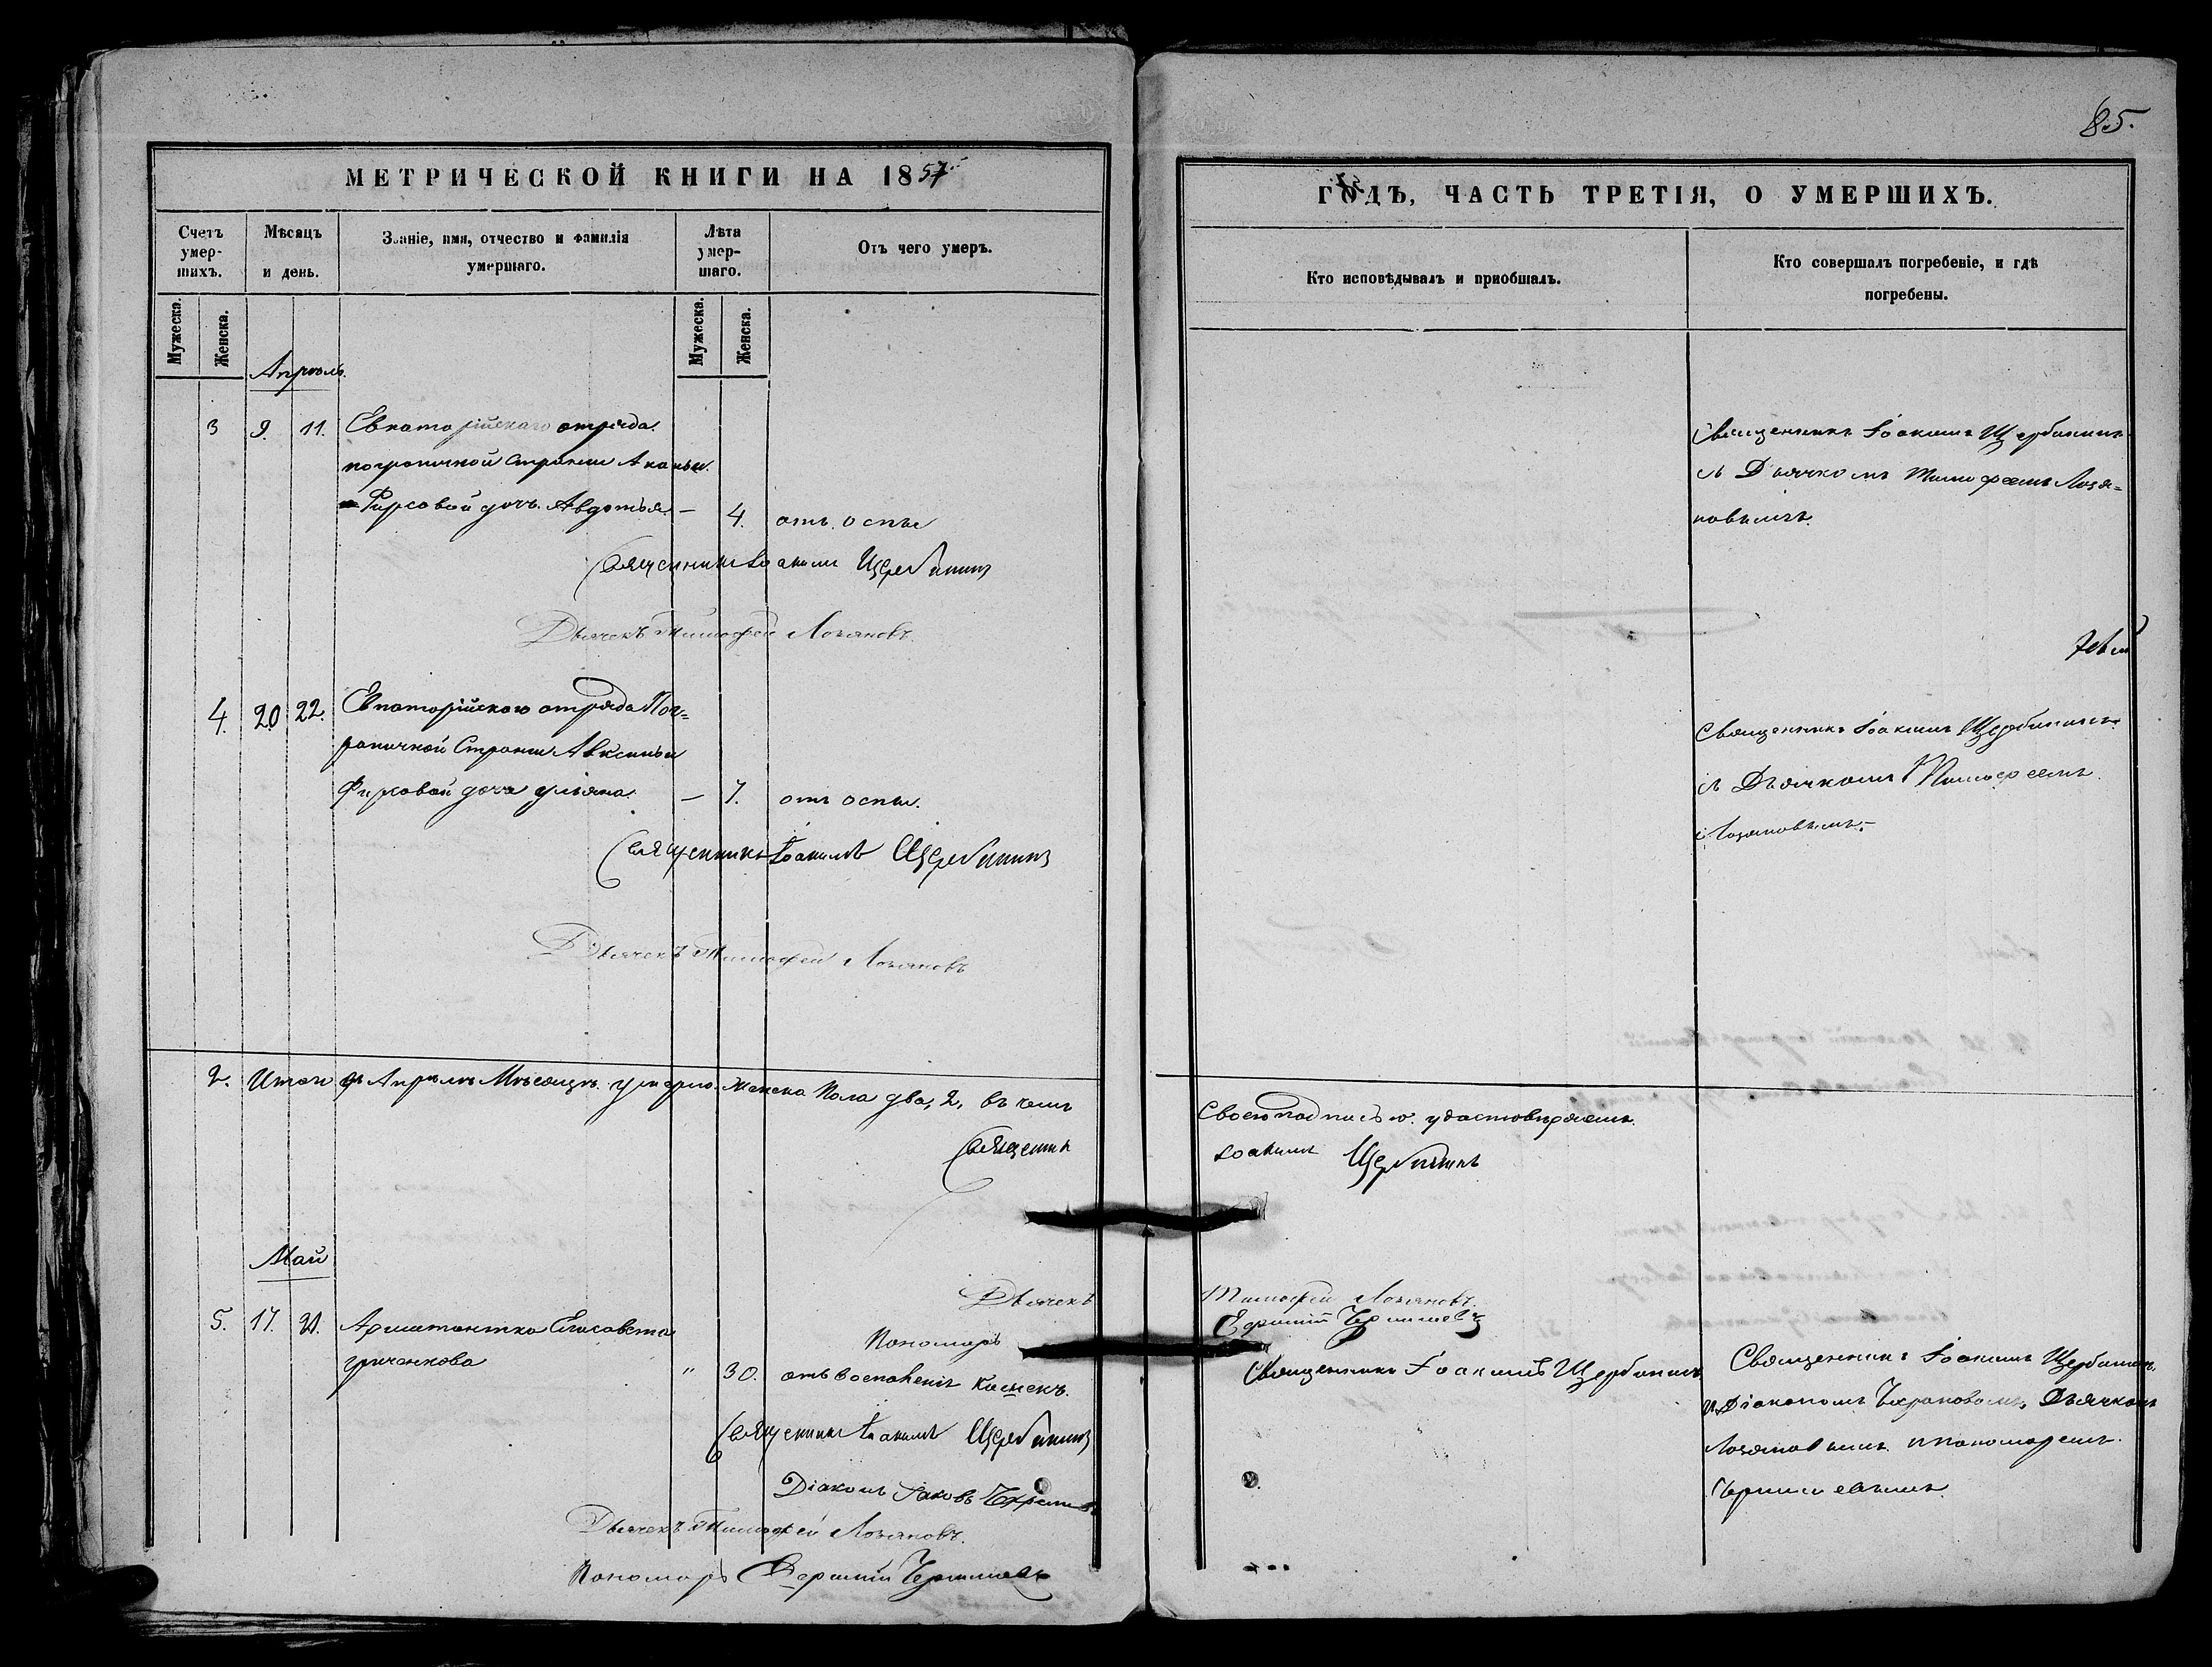 85.
МЕТРИЧЕСКОЙ КНИГИ НА 1857
ГОДЪ, ЧАСТЬ ТРЕТІЯ, О УМЕРШИХЪ.
Счетъ умер-шихъ.
Мѣсяцъ и день.
Званіе, имя, отчество и фамилія умершаго.
Лѣта умер-шаго.
Отъ чего умеръ.
Кто исповѣдывалъ и приобщалъ.
Кто совершалъ погребеніе, и гдѣ погребены.
Мужеска.
Женска.
Мужеска.
Женска.
Апрѣль
3 9. 11. Евпаторійскаго отряда
пограничной Стражи
Фирсовой дочь Авдотья — 4. отъ оспы
Священникъ Іоакимъ Щербининъ
съ Дьячкомъ Тимофеемъ Лозя=
новымъ.
Священникъ Іоакимъ Щербининъ
Дьячекъ Тимофей Лозяновъ
4. 20 22. Евпаторійскаго отряда Пог=
раничной Стражи Авксиньи
Фирсовой дочь Ульяна. — 7. отъ оспы.
Священникъ Іоакимъ Щербининъ
съ Дьячкомъ Тимофеемъ
Лозяновымъ.
Священникъ Іоакимъ Щербининъ
Дьячекъ Тимофей Лозяновъ
2. Итого въ Апрѣлѣ Мѣсяцѣ умерло женска пола два, 2, въ чемъ
Своею подписью удостовѣряемъ.
Священникъ Іоакимъ Щербининъ
Дьячекъ Тимофей Лозяновъ.
Пономарь Чернышевъ
Май
5. 17. Арестантка Елисавета
" 30. отъ воспаленія кишекъ.
Священникъ Іоакимъ Щербининъ
Священникъ Іоакимъ Щербининъ
Діакономъ Дьячкомъ
Лозяновымъ и пономаремъ
Чернышевымъ.
Священникъ Іоакимъ Щербининъ
Діаконъ Іаковъ
Дьячекъ Тимофей Лозяновъ.
Пономарь Чернышевъ